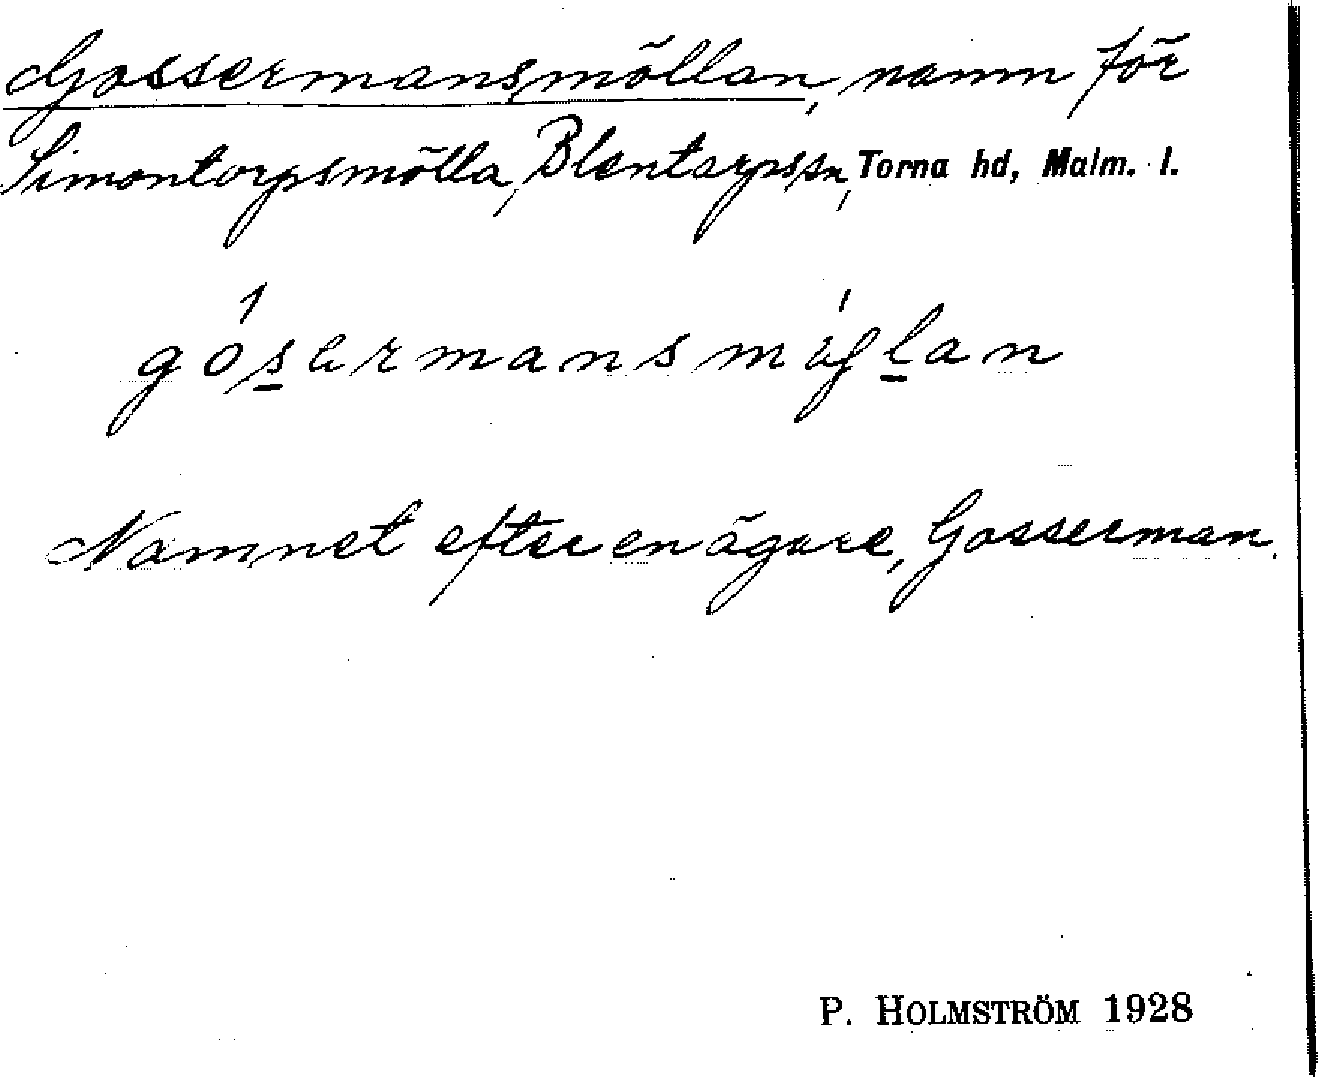 Gossermansmöllan, namn för
Simontorpsmölla, Blentarps sn, Torna hd, Malm. l.
Namnet efter en ägare, Gosserman.
P. HOLMSTRÖM 1928